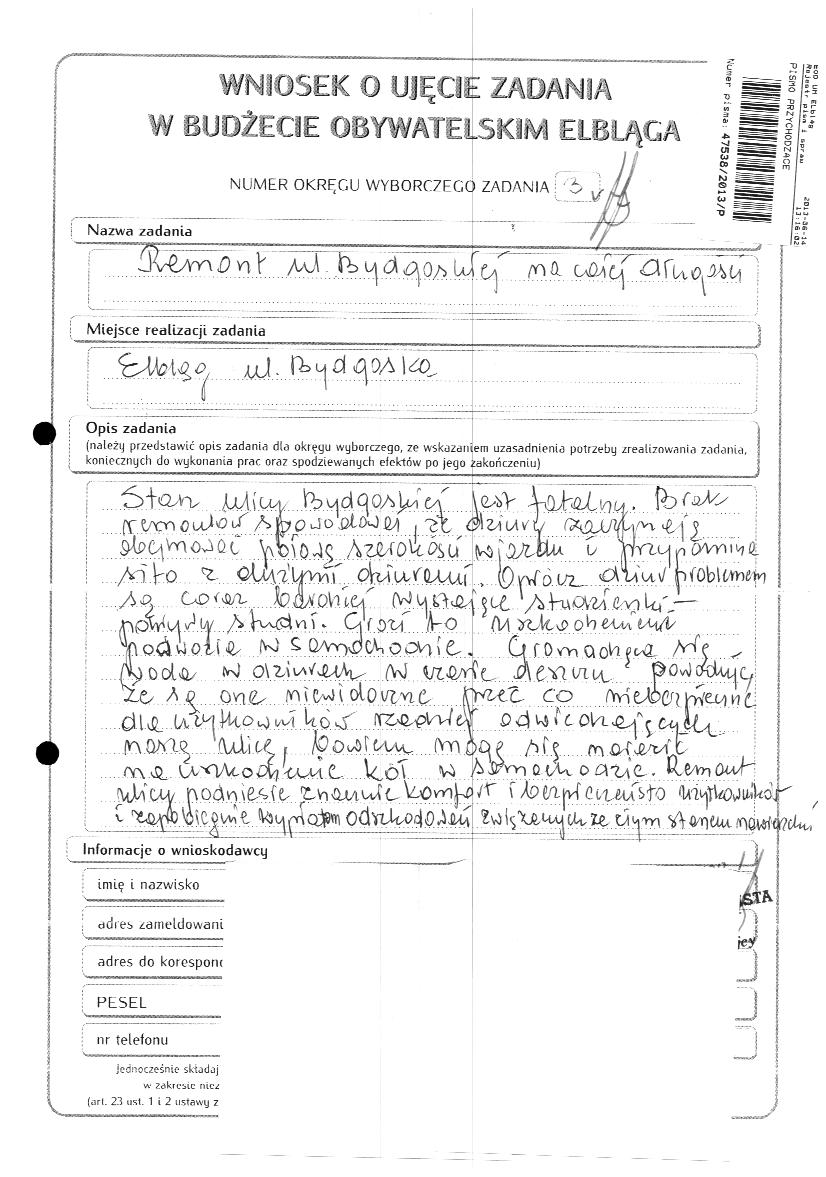 EOD UM Elbląg
Rejestr pism i spraw
PISMO PRZYCHODZĄCE
2013-06-14
13:16:02
Numer pisma: 47538/2013/P
WNIOSEK O UJĘCIE ZADANIA
W BUDŻECIE OBYWATELSKIM ELBLĄGA
NUMER OKRĘGU WYBORCZEGO ZADANIA 3
Nazwa zadania
Remont ul. Bydgoskiej na całej długości
Miejsce realizacji zadania
Elbląg ul. Bydgoska
Opis zadania
(należy przedstawić opis zadania dla okręgu wyborczego, ze wskazaniem uzasadnienia potrzeby zrealizowania zadania,
koniecznych do wykonania prac oraz spodziewanych efektów po jego zakończeniu)
Stan ulicy Bydgoskiej jest fatalny. Brak
remontów spowodował, że dziury zaczynają
obejmować połowę szerokości wjazdu i przypomina
sito z dużymi dziurami. Oprócz dziur problemem
są coraz bardziej wystające studzienki –
pokrywy studni. Grozi to uszkodzeniem
podwozia w samochodzie. Gromadząca się
woda w dziurach w czasie deszczu powoduje,
że są one niewidoczne przez co niebezpieczne
dla użytkowników rzadziej odwiedzających
naszą ulicę, bowiem mogą się narazić
na uszkodzenie kół w samochodzie. Remont
ulicy podniesie znacznie komfort i bezpieczeństo użytkowników
i zapobiegnie wypłatom odszkodowań związanych ze złym stanem nawierzchni
Informacje o wnioskodawcy
imię i nazwisko
adres zameldowani
adres do korespond
PESEL
nr telefonu
Jednocześnie składaj
w zakresie niez
(art. 23 ust. 1 i 2 ustawy z
STA
jey